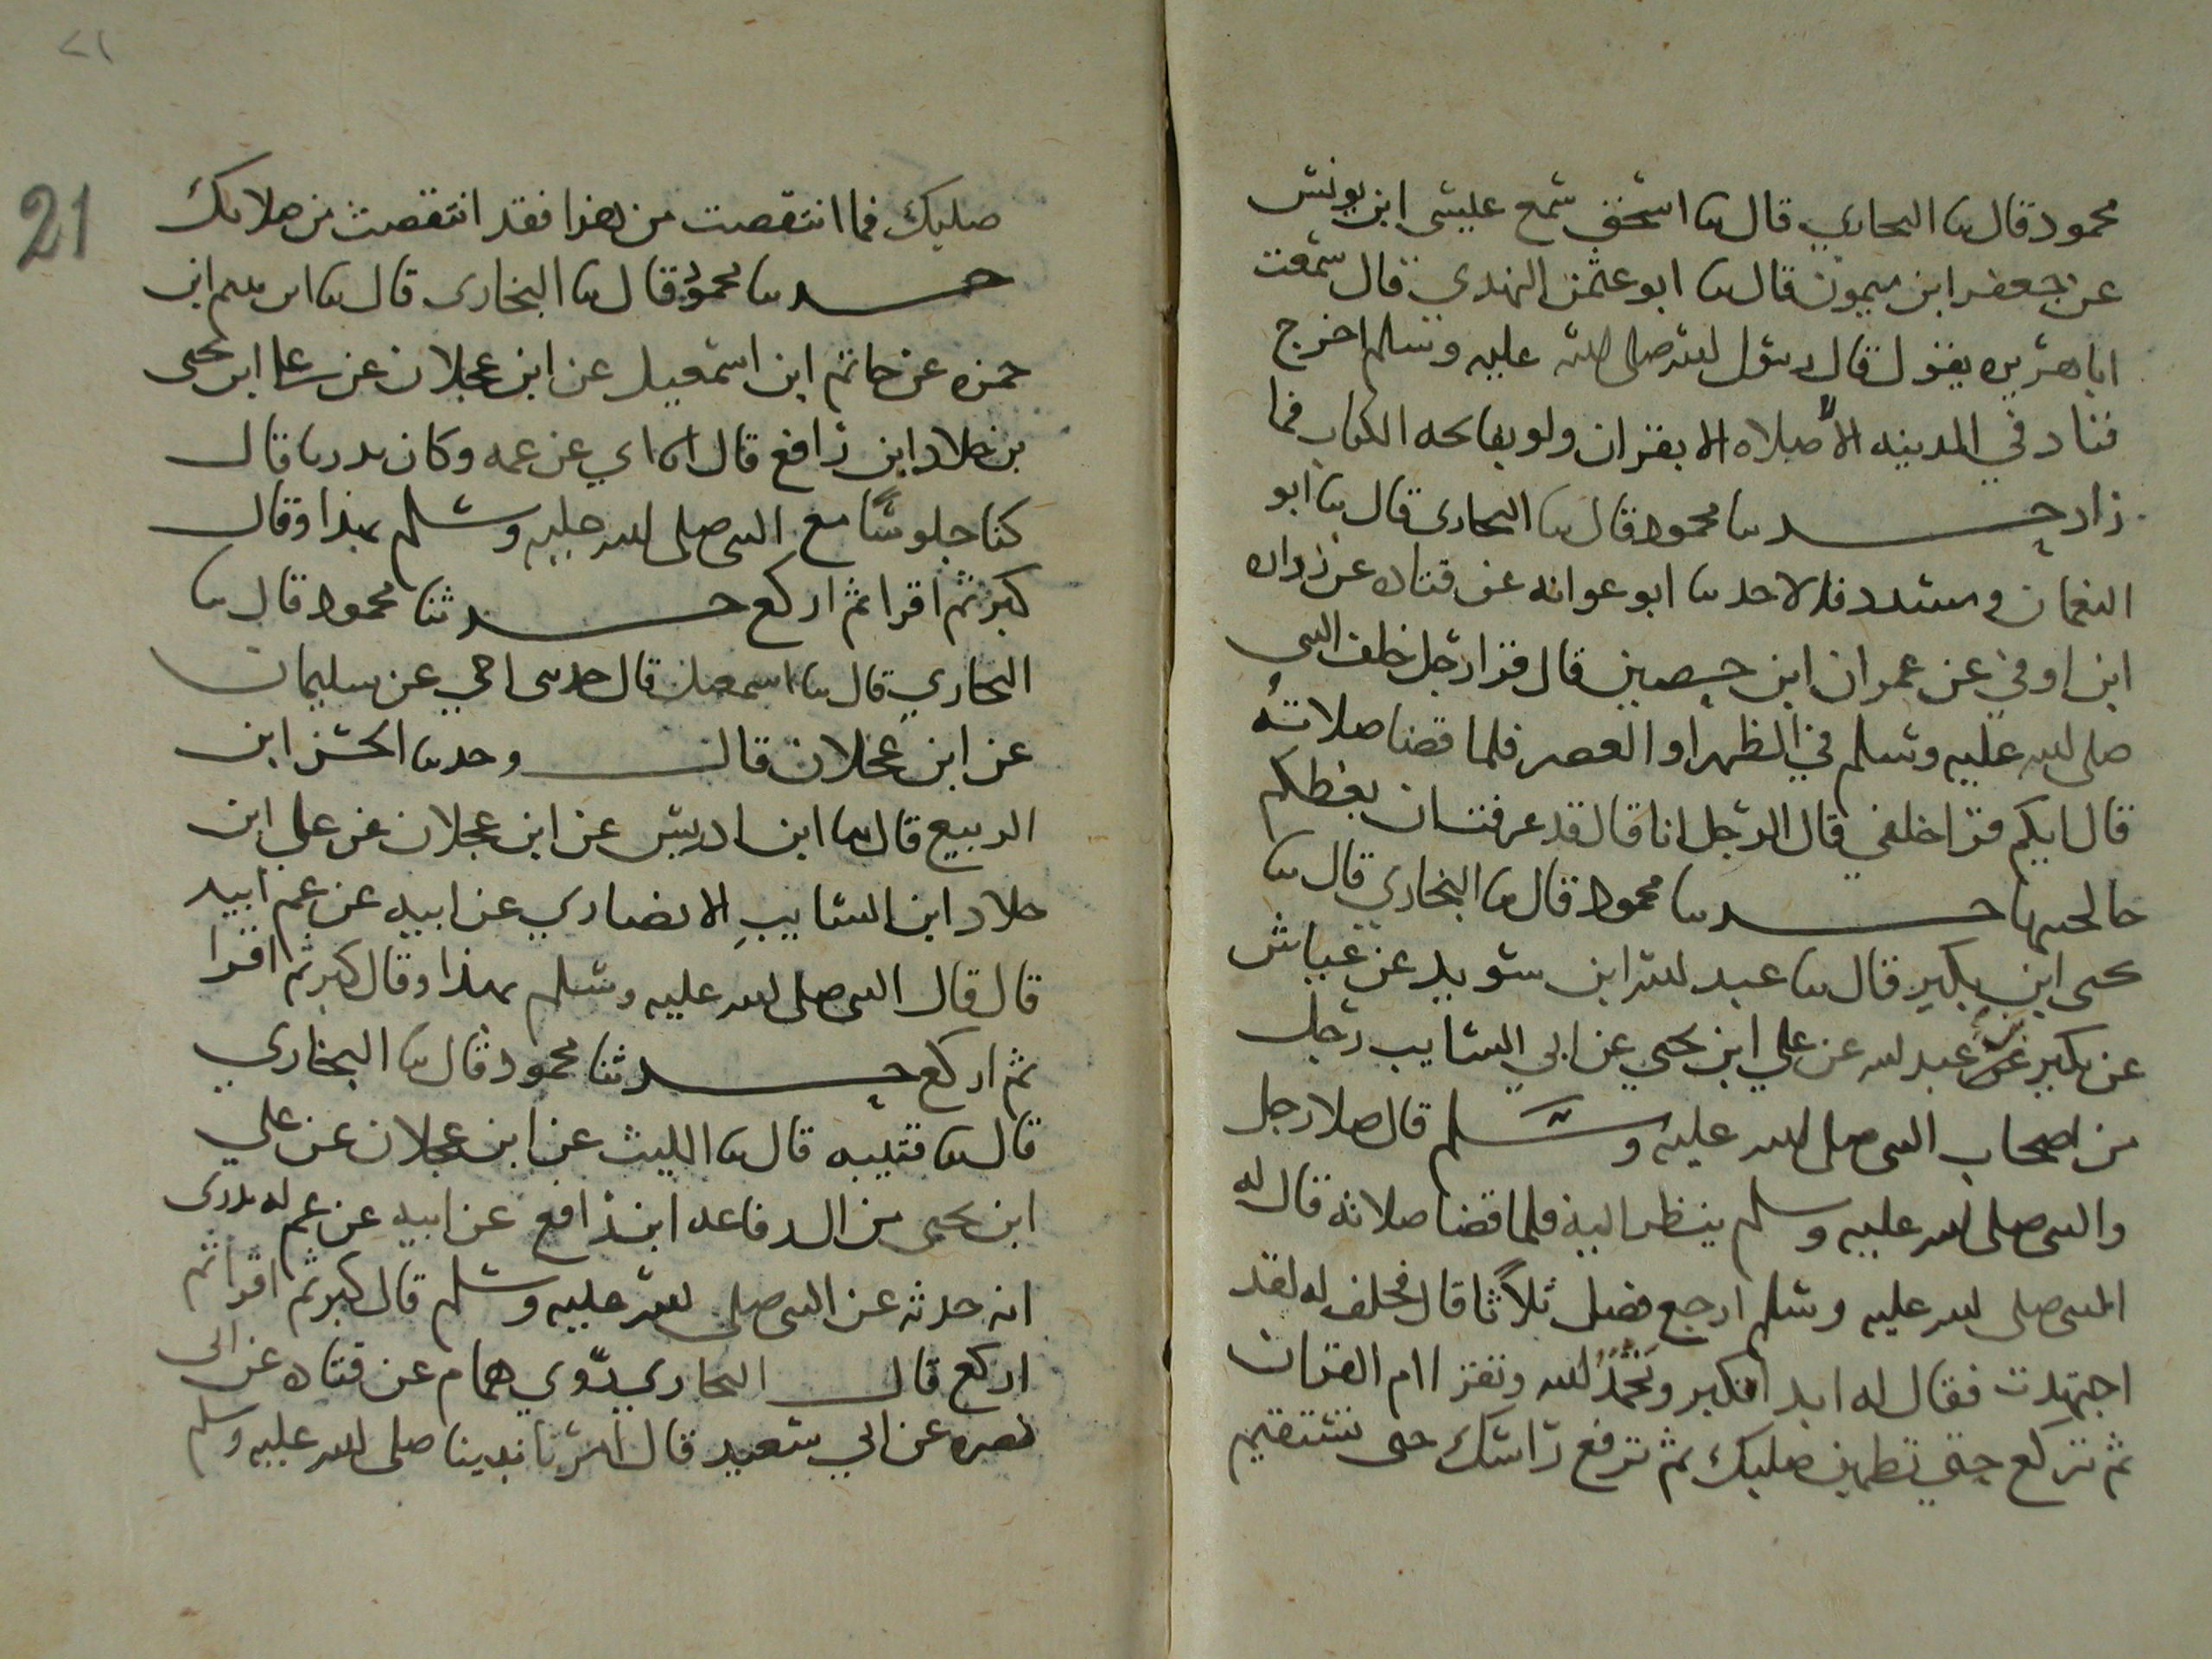 محمود قال ثنا البخاري قال ثنا اسحق سمع عيسى ابن يونس
عن جعفر ابن ميمون قال ثنا ابو عثمن النهدي قال سمعت
ابا هريره يقول قال رسول الله صلى الله عليه وسلم اخرج
فناد في المدينه الا صلاه الا بقران ولو بفاتحه الكتاب فما
زاد حدثنا محمود قال ثنا البخاري قال ثنا ابو
النعمان ومسدد قالا حدثنا ابو عوانه عن قتاده عن زراره
ابن اوفي عن عمران ابن حصين قال قرا رجل خلف النبي
صلى الله عليه وسلم في الظهر او العصر فلما قضا صلاته
قال ايكم قرا خلفي قال الرجل انا قال قد عرفت ان بعضكم
خالجنيها حدثنا محمود قال ثنا البخاري قال ثنا
يحيى ابن بكير قال ثنا عبد الله ابن سويد عن عياش
عن بكير عن عبد الله عن علي ابن يحيي عن ابي السايب رجل
من اصحاب النبي صلى الله عليه وسلم قال صلا رجل
والنبي صلى الله عليه وسلم ينظر اليه فلما قضا صلاته قال له
النبي صلى الله عليه وسلم ارجع فصل ثلاثا قال فحلف له لقد
اجتهدت فقال له ابدا فكبر وتحمد الله وتقرا ام القران
ثم تركع حتي تطمين صلبك ثم ترفع راسك حتى تستقيم
21
صلبك فما انتقصت من هذا فقد انتقصت من صلاتك
حدثنا محمود قال ثنا البخاري قال ثنا ابرهيم ابن
حمزه عن حاتم ابن اسمعيل عن ابن عجلان عن علي ابن يحيى
بن خلاد ابن رافع قال انا ابي عن عمه وكان بدريا قال
كنا جلوسا مع النبي صلى الله عليه وسلم بهذا وقال
كبر ثم اقرا ثم اركع حدثنا محمود قال ثنا
البخاري قال ثنا اسمعيل قال حدثني اخي عن سليمان
عن ابن عجلان قال وحدثنا الحسن ابن
الربيع قال ثنا ابن ادريس عن ابن عجلان عن علي ابن
خلاد ابن السايب الانصاري عن ابيه عن عم ابيه
قال قال النبي صلى الله عليه وسلم بهذا وقال كبر ثم اقرا
ثم اركع حدثنا محمود قال ثنا البخاري
قال ثنا قتيبه قال ثنا الليث عن ابن عجلان عن علي
ابن يحيى من ال رفاعه ابن رافع عن ابيه عن عم له بدري
انه حدثه عن النبي صلى الله عليه وسلم قال كبر ثم اقرا ثم
اركع قال البخاري روي همام عن قتاده عن ابي
نضره عن ابي سعيد قال امرنا نبينا صلى الله عليه وسلم